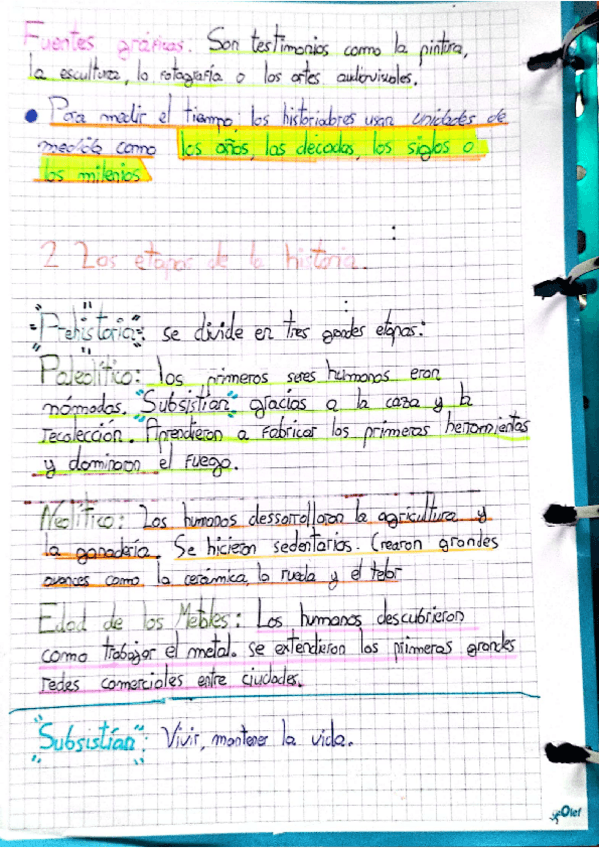 Fuentes gráficas: Son testimonios como la pintura,
la escultura, la fotagrafía o las artes audiovisuales.
Para medir el tiempo; los historiadores usan unidades de
medida como los años, las décadas, los siglos o
los milenios
2 Las etapas de la historia.
"Prehistoria": se divide en tres grandes etapas:
Paleolítico: los primeros seres humanos eran
nómadas. "Subsistían" gracias a la caza y la
recolección. Aprendieron a fabricar las primeras herramientas
y dominaron el fuego.
Neolítico: Los humanos dessarrollaron la agricultura y
la ganadería. Se hicieron sedentarios. Crearon grandes
avances como la cerámica, la rueda y el telar
Edad de los Metales: Los humanos descubrieron
como trabajar el metal. se extendieron las primeras grandes
redes comerciales entre ciudades.
"Subsistían": Vivir, mantener la vida.